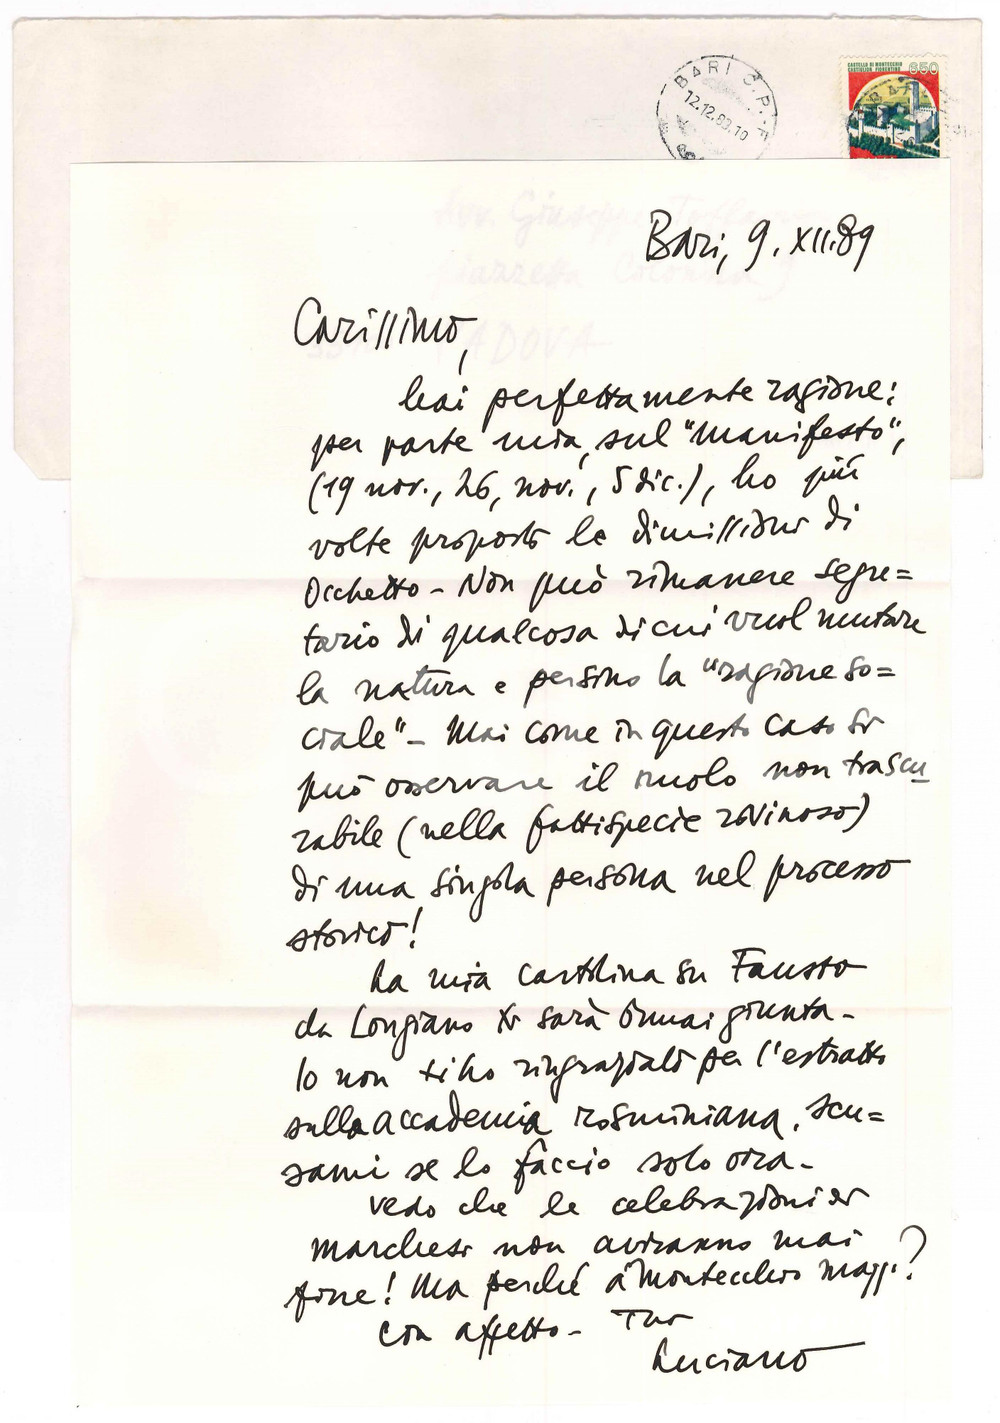 BARI C.P.
12.12.89.10
CASTELLO DI MONTECCHIO
CASTIGLION FIORENTINO
650
Bari, 9. XII. 89
PADOVA
Carissimo,
hai perfettamente ragione:
per parte mia, sul "Manifesto",
(19 nov., 26, nov., 5 dic.), ho più
volte proposto le dimissioni di
Occhetto - Non può rimanere segre=
tario di qualcosa di cui vuol mutare
la natura e persino la "ragione so=
ciale" - Mai come in questo caso si
può osservare il ruolo non trascu
rabile (nella fattispecie rovinoso)
di una singola persona nel processo
storico!
La mia cartolina su Fausto
da Longiano ti sarà ormai giunta -
Io non ti ho ringraziato per l'estratto
sulla accademia rosminiana, scu=
sami se lo faccio solo ora -
Vedo che le celebrazioni di
Marchesi non avranno mai
fine! Ma perché a Montecchio Magg.?
Con affetto - Tuo
Luciano